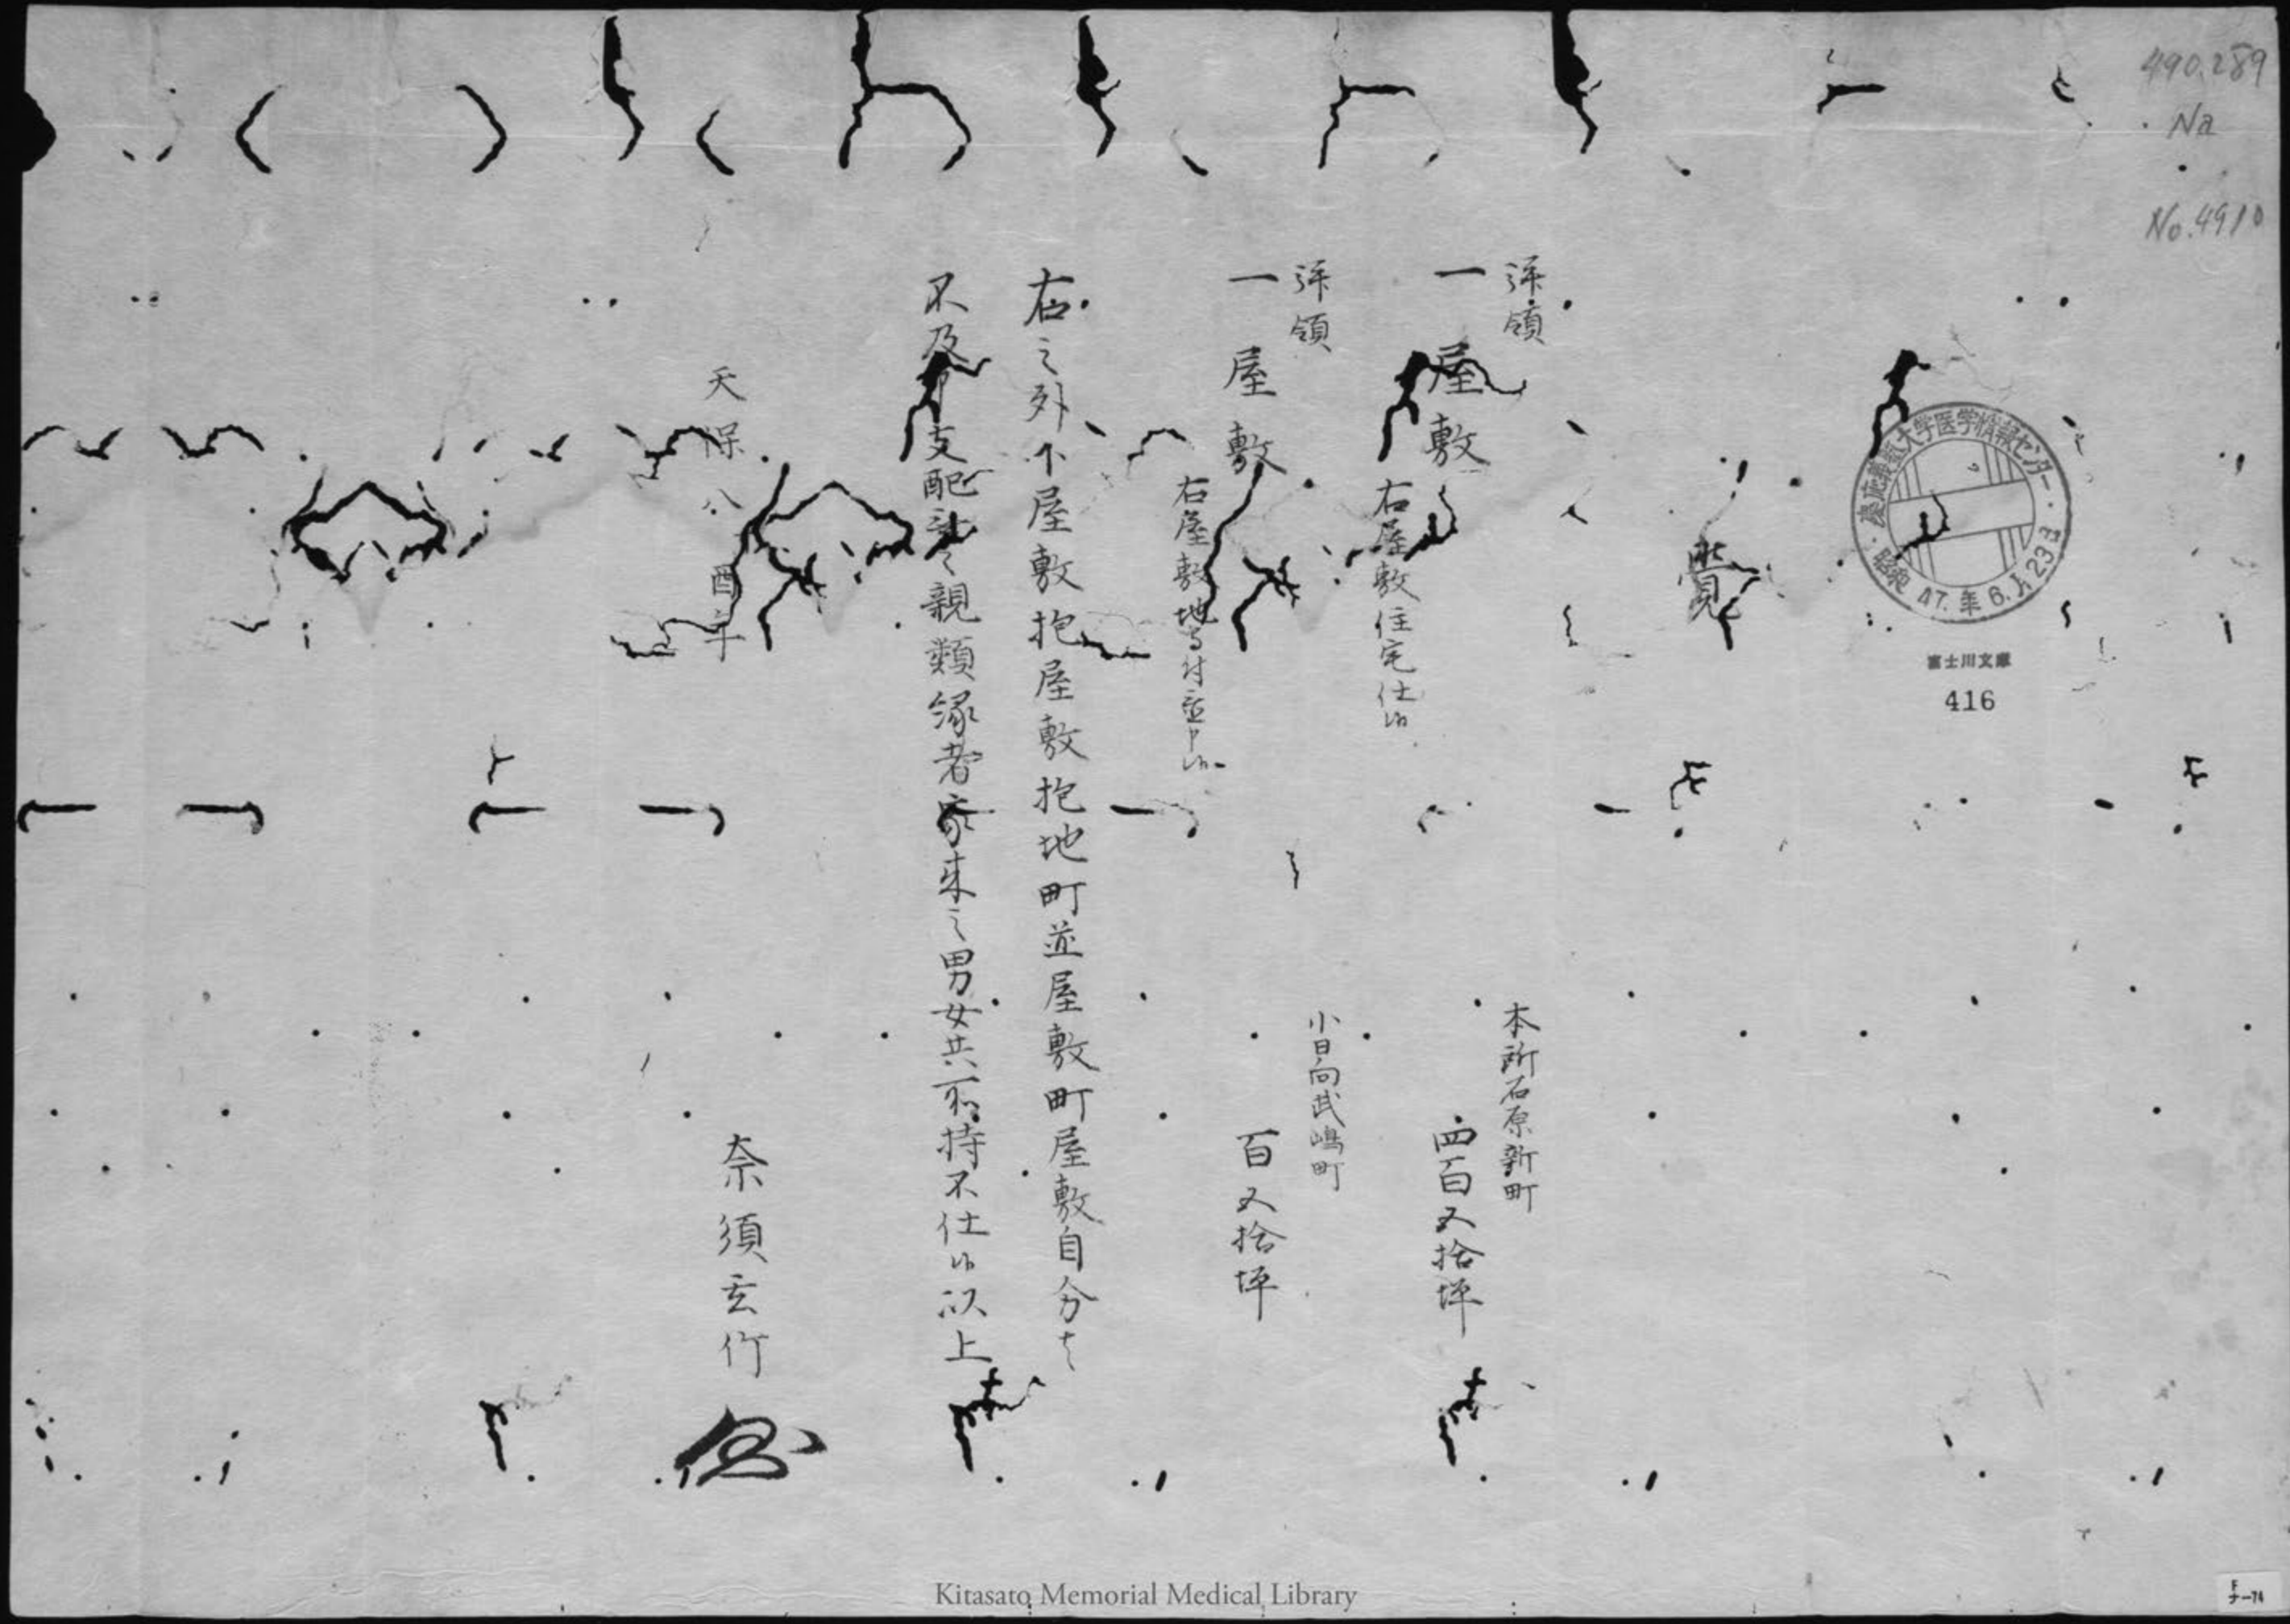 490.289
Na
No.4910
慶應義塾大学医学情報センター
昭和 47.年 6.月 23日
富士川文庫
416
覺
拝領
一 屋敷
本所石原新町
四百五拾坪
右屋敷住宅仕候
拝領
一 屋敷
小日向武嶋町
百五拾坪
右屋敷地守付置申候
右之外下屋敷抱屋敷抱地町並屋敷町屋敷自分者
不及申支配 親類縁者家来之男女共所持不仕候以上
天保八酉年
奈須玄竹
Kitasato Memorial Medical Library